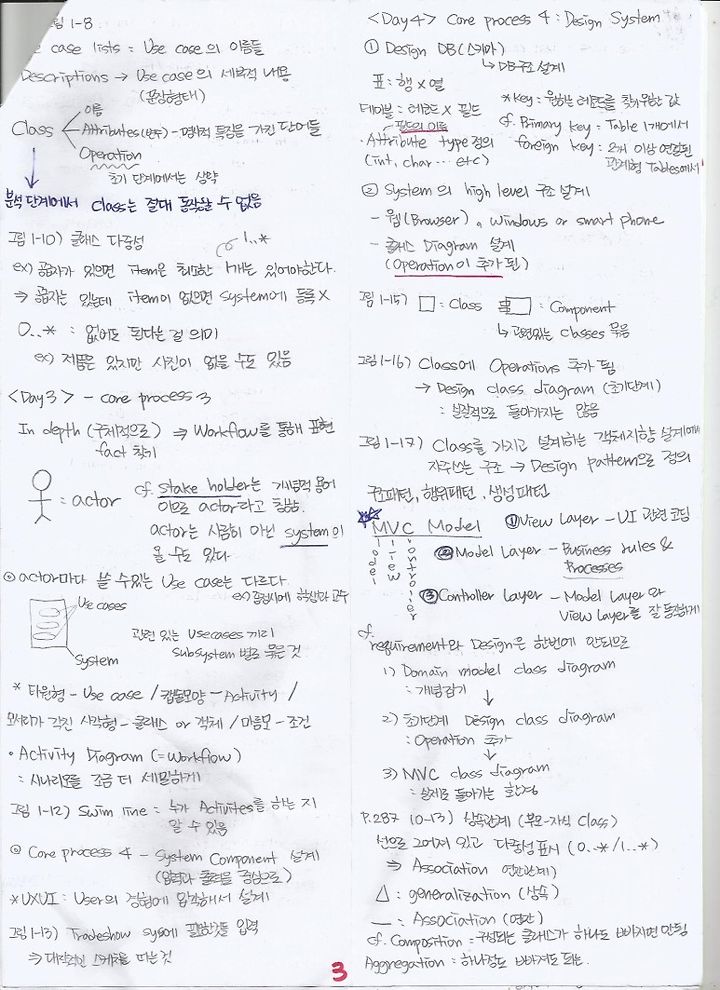 림 1-8
e case lists : Use case의 이름들
Descriptions → Use case의 세부적 내용
(문장형태)
Class
이름
Attributes(변수) - 명사적 특징을 가진 단어들
Operation
초기 단계에서는 생략
분석단계에서 Class는 절대 동작할 수 없음
그림 1-10) 클래스 다중성
1..*
ex) 공급자가 있으면 item은 최소한 1개는 있어야한다.
⇒ 공급자는 있는데 item이 없으면 System에 등록 X
0..* : 없어도 된다는 걸 의미
ex) 제품은 있지만 사진이 없을 수도 있음
<Day3> - core process 3
In depth (구체적으로) ⇒ Workflow를 통해 표현
fact 찾기
: actor
cf. stake holder는 개념적 용어
이므로 actor라고 칭함.
actor는 사람이 아닌 system이
올 수도 있다
◎ actor마다 쓸 수 있는 Use case는 다르다.
ex) 학생과 교수
Use cases
System
관련 있는 Usecases 끼리
subsystem 별로 묶은 것
* 타원형 - Use case / 캡슐모양 - Activity /
모서리가 각진 사각형 - 클래스 or 객체 / 마름모 - 조건
• Activity Diagram (= Workflow)
: 시나리오를 조금 더 세밀하게
그림 1-12) Swim line : 누가 Activites를 하는 지
알 수 있음
◎ Core process 4 - System Component 설계
(입력과 출력을 중심으로)
* UXUI : User의 경험에 입각해서 설계
그림 1-13) Tradeshow sys에 필요한것들 입력
⇒ 대략적인 스케치를 따는 것
3
<Day4> Core process 4 : Design System
① Design DB (스키마)
↳ DB구조 설계
표 : 행 × 열
테이블 : 레코드 × 필드
필드의 이름
• Attribute type 정의
(int, char … etc)
* Key : 원하는 레코드를 찾기 위한 값
cf. Primary key : Table 1개에서
foreign key : 2개 이상 연결된
관계형 Tables에서
② System의 high level 구조 설계
- 웹(Browser), windows or smart phone
- 클래스 Diagram 설계
(Operation이 추가 됨)
그림 1-15) □ : Class : Component
↳ 관련있는 classes 묶음
그림 1-16) Class에 Operations 추가 됨
→ Design class diagram (초기단계)
: 실질적으로 돌아가지는 않음
그림 1-17) Class를 가지고 설계하는 객체지향 설계에
자주쓰는 구조 → Design pattern으로 정의
구조패턴, 행위패턴, 생성패턴
☆☆ MVC Model
Model View Controller
① View Layer - UI 관련 코딩
② Model Layer - Business rules &
Processes
③ Controller Layer - Model Layer와
View Layer를 잘 동작하게
cf.
requirement와 Design은 한번에 안되므로
1) Domain model class diagram
: 개념잡기
↓
2) 초기단계 Design class diagram
: Operation 추가
↓
3) MVC class diagram
: 실제로 돌아가는 환경
P.287 10-13) 상속관계 (부모-자식 Class)
선으로 그어져 있고 다중성 표시 (0..* / 1..*)
⇒ Association 연관관계)
△ : generalization (상속)
— : Association (연관)
cf. Composition : 구성되는 클래스가 하나도 빠지면 안됨
Aggregation : 하나정도 빠져도 되는.